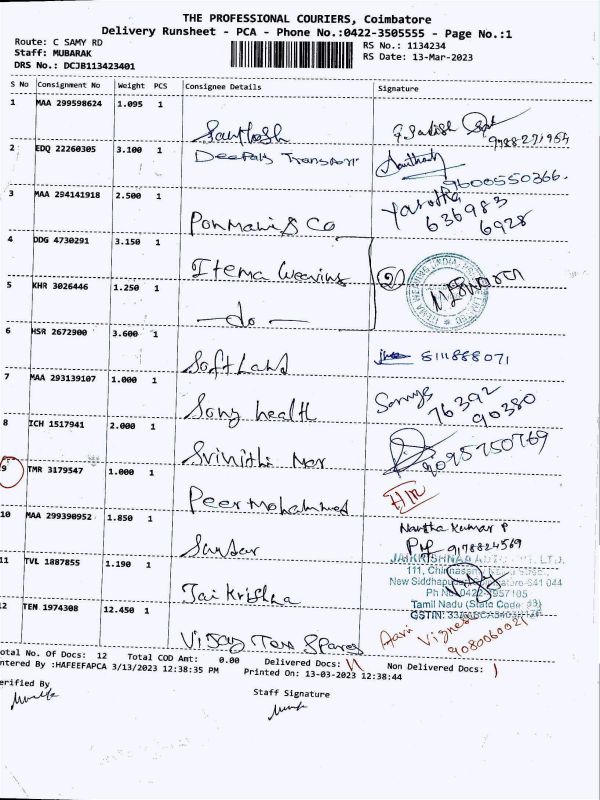 THE PROFESSIONAL COURIERS, Coimbatore
Delivery Runsheet - PCA - Phone No.:0422-3505555 - Page No.:1
Route: C SAMY RD
RS No.: 1134234
Staff: MUBARAK
RS Date: 13-Mar-2023
DRS No.: DCJB113423401
S No Consignment No Weight PCS Consignee Details Signature
1 MAA 299598624 1.095 1
Santhosh
2 EDQ 22260305 3.100 1
Deepak Transport
9600550366.
3 MAA 294141918 2.500 1
Ponmani & Co
636983
6928
4 DDG 4730291 3.150 1
Itema Weaving
2
5 KHR 3026446 1.250 1
- do -
6 HSR 2672900 3.600 1
Soft Land 8111888071
7 MAA 293139107 1.000 1
Sony health
76392
90380
8 ICH 1517941 2.000 1
Srinithi
9095750769
9 TMR 3179547 1.000 1
Peer Mohammed
10 MAA 299390952 1.850 1
Nantha Kumar P
9178824569
11 TVL 1887855 1.190 1
Jai Krishna
12 TEN 1974308 12.450 1
111,
New Siddhapudur 641 044
Ph No
Tamil Nadu (State Code 33)
GSTIN:
Vijay Tem Spares
Total No. Of Docs: 12 Total COD Amt: 0.00 Delivered Docs: 11 Non Delivered Docs: 1
Entered By :HAFEEFAPCA 3/13/2023 12:38:35 PM Printed On: 13-03-2023 12:38:44
Verified By
Staff Signature